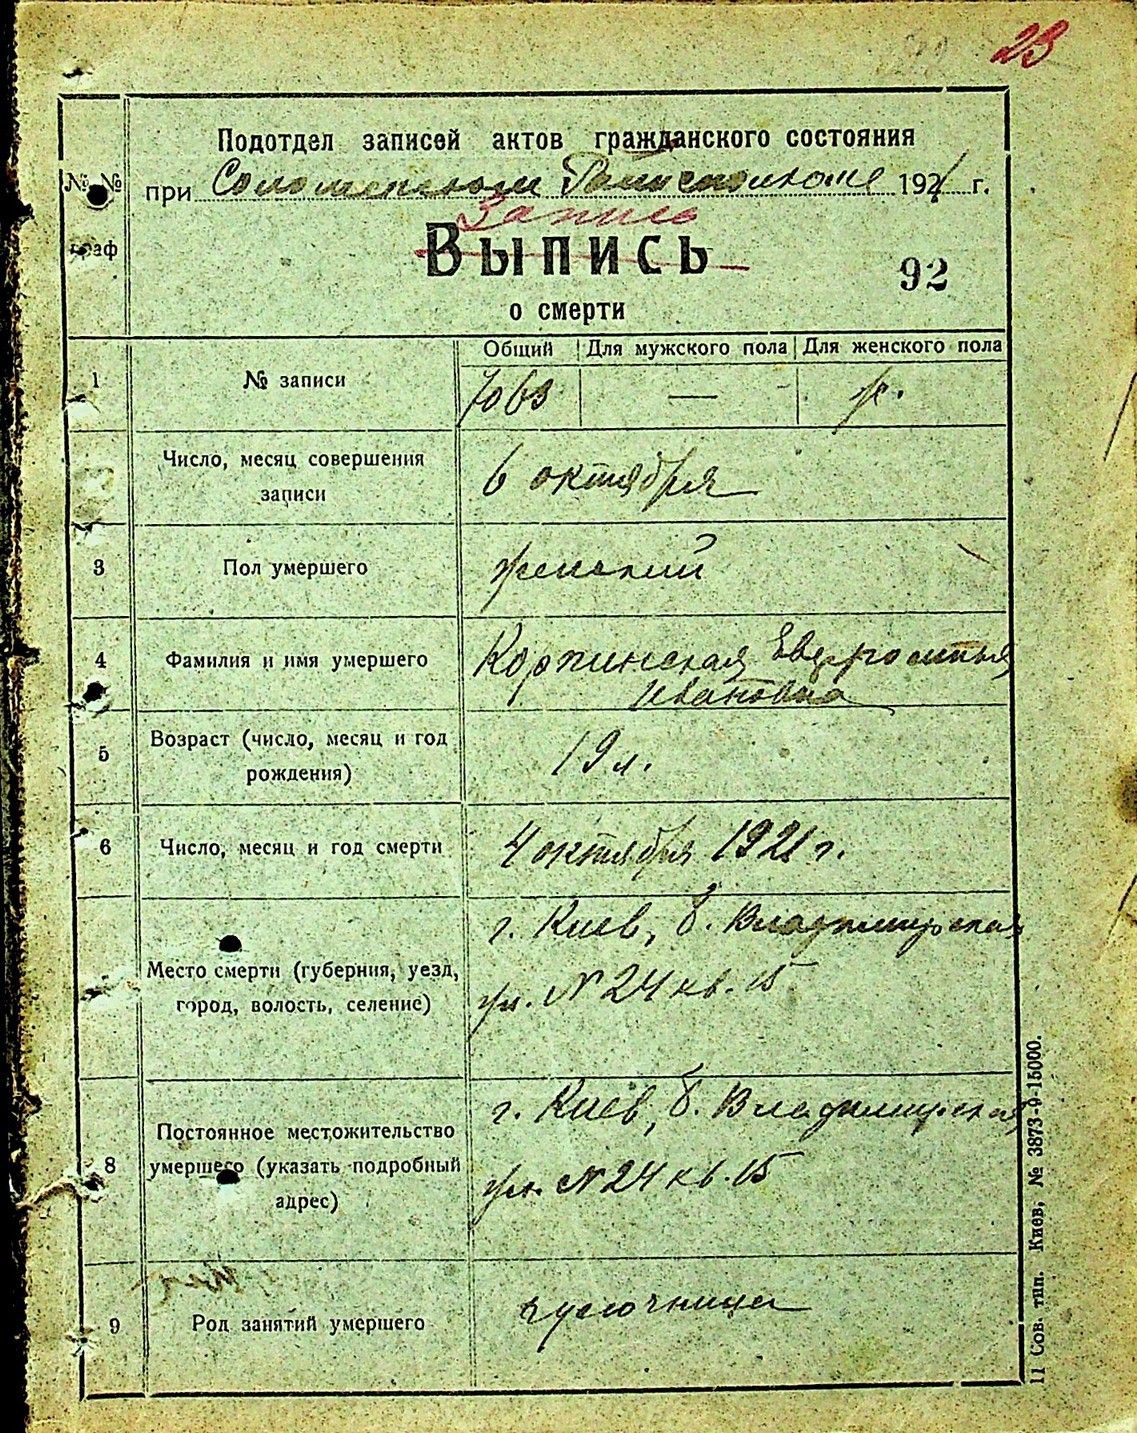 23
Подотдел записей актов гражданского состояния
№ №
при Соломенском Райисполкоме 1921 г.
Запись
граф
Выпись
92
о смерти
Общий Для мужского пола Для женского пола
1 № записи 1063 — ж.
Число, месяц совершения
записи
6 октября
3 Пол умершего женский
4 Фамилия и имя умершего
Ивановна
5 Возраст (число, месяц и год
рождения)
19 л.
6 Число, месяц и год смерти 4 октября 1921 г.
Место смерти (губерния, уезд,
город, волость, селение)
г. Киев, б. Владимирская
ул. № 24 кв. 15
8 Постоянное местожительство
умершего (указать подробный
адрес)
г. Киев, б. Владимирская
ул. № 24 кв. 15
9 Род занятий умершего
11 Сов. тип. Киев, № 3873-9-15000.